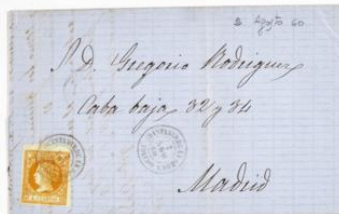 2 Agosto 60
S. D. Gregorio Rodriguez
Caba baja 32 y 34
Madrid